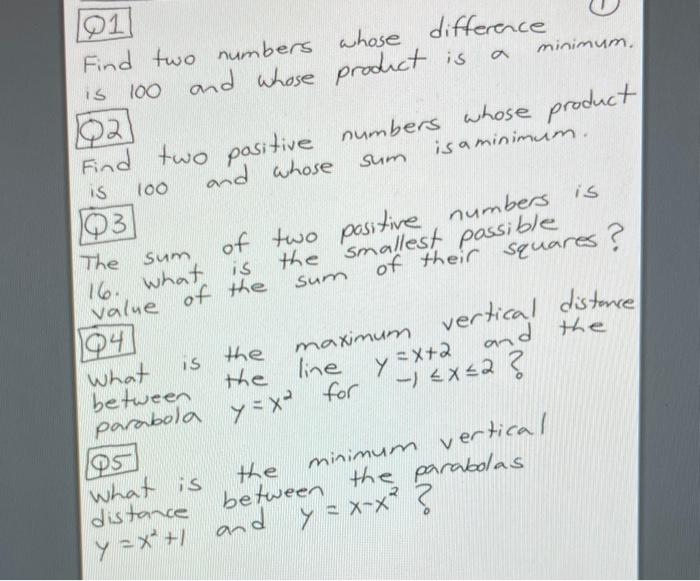 1
Q1
Find two numbers whose difference
is 100 and whose product is a minimum.
Q2
Find two positive numbers whose product
is 100 and whose sum is a minimum.
Q3
The sum of two positive numbers is
16. what is the smallest possible
value of the sum of their squares?
Q4
what is the maximum vertical distance
between the line y=x+2 and the
parabola y=x² for -1≤x≤2?
Q5
what is the minimum vertical
distance between the parabolas
y=x²+1 and y=x-x²?